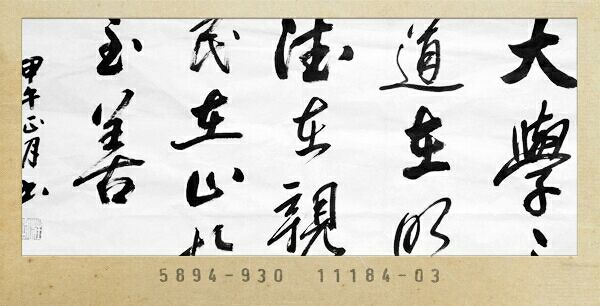 大學
道在明
德在親
民在止於
至善
甲午正月書
5894-930 11184-03